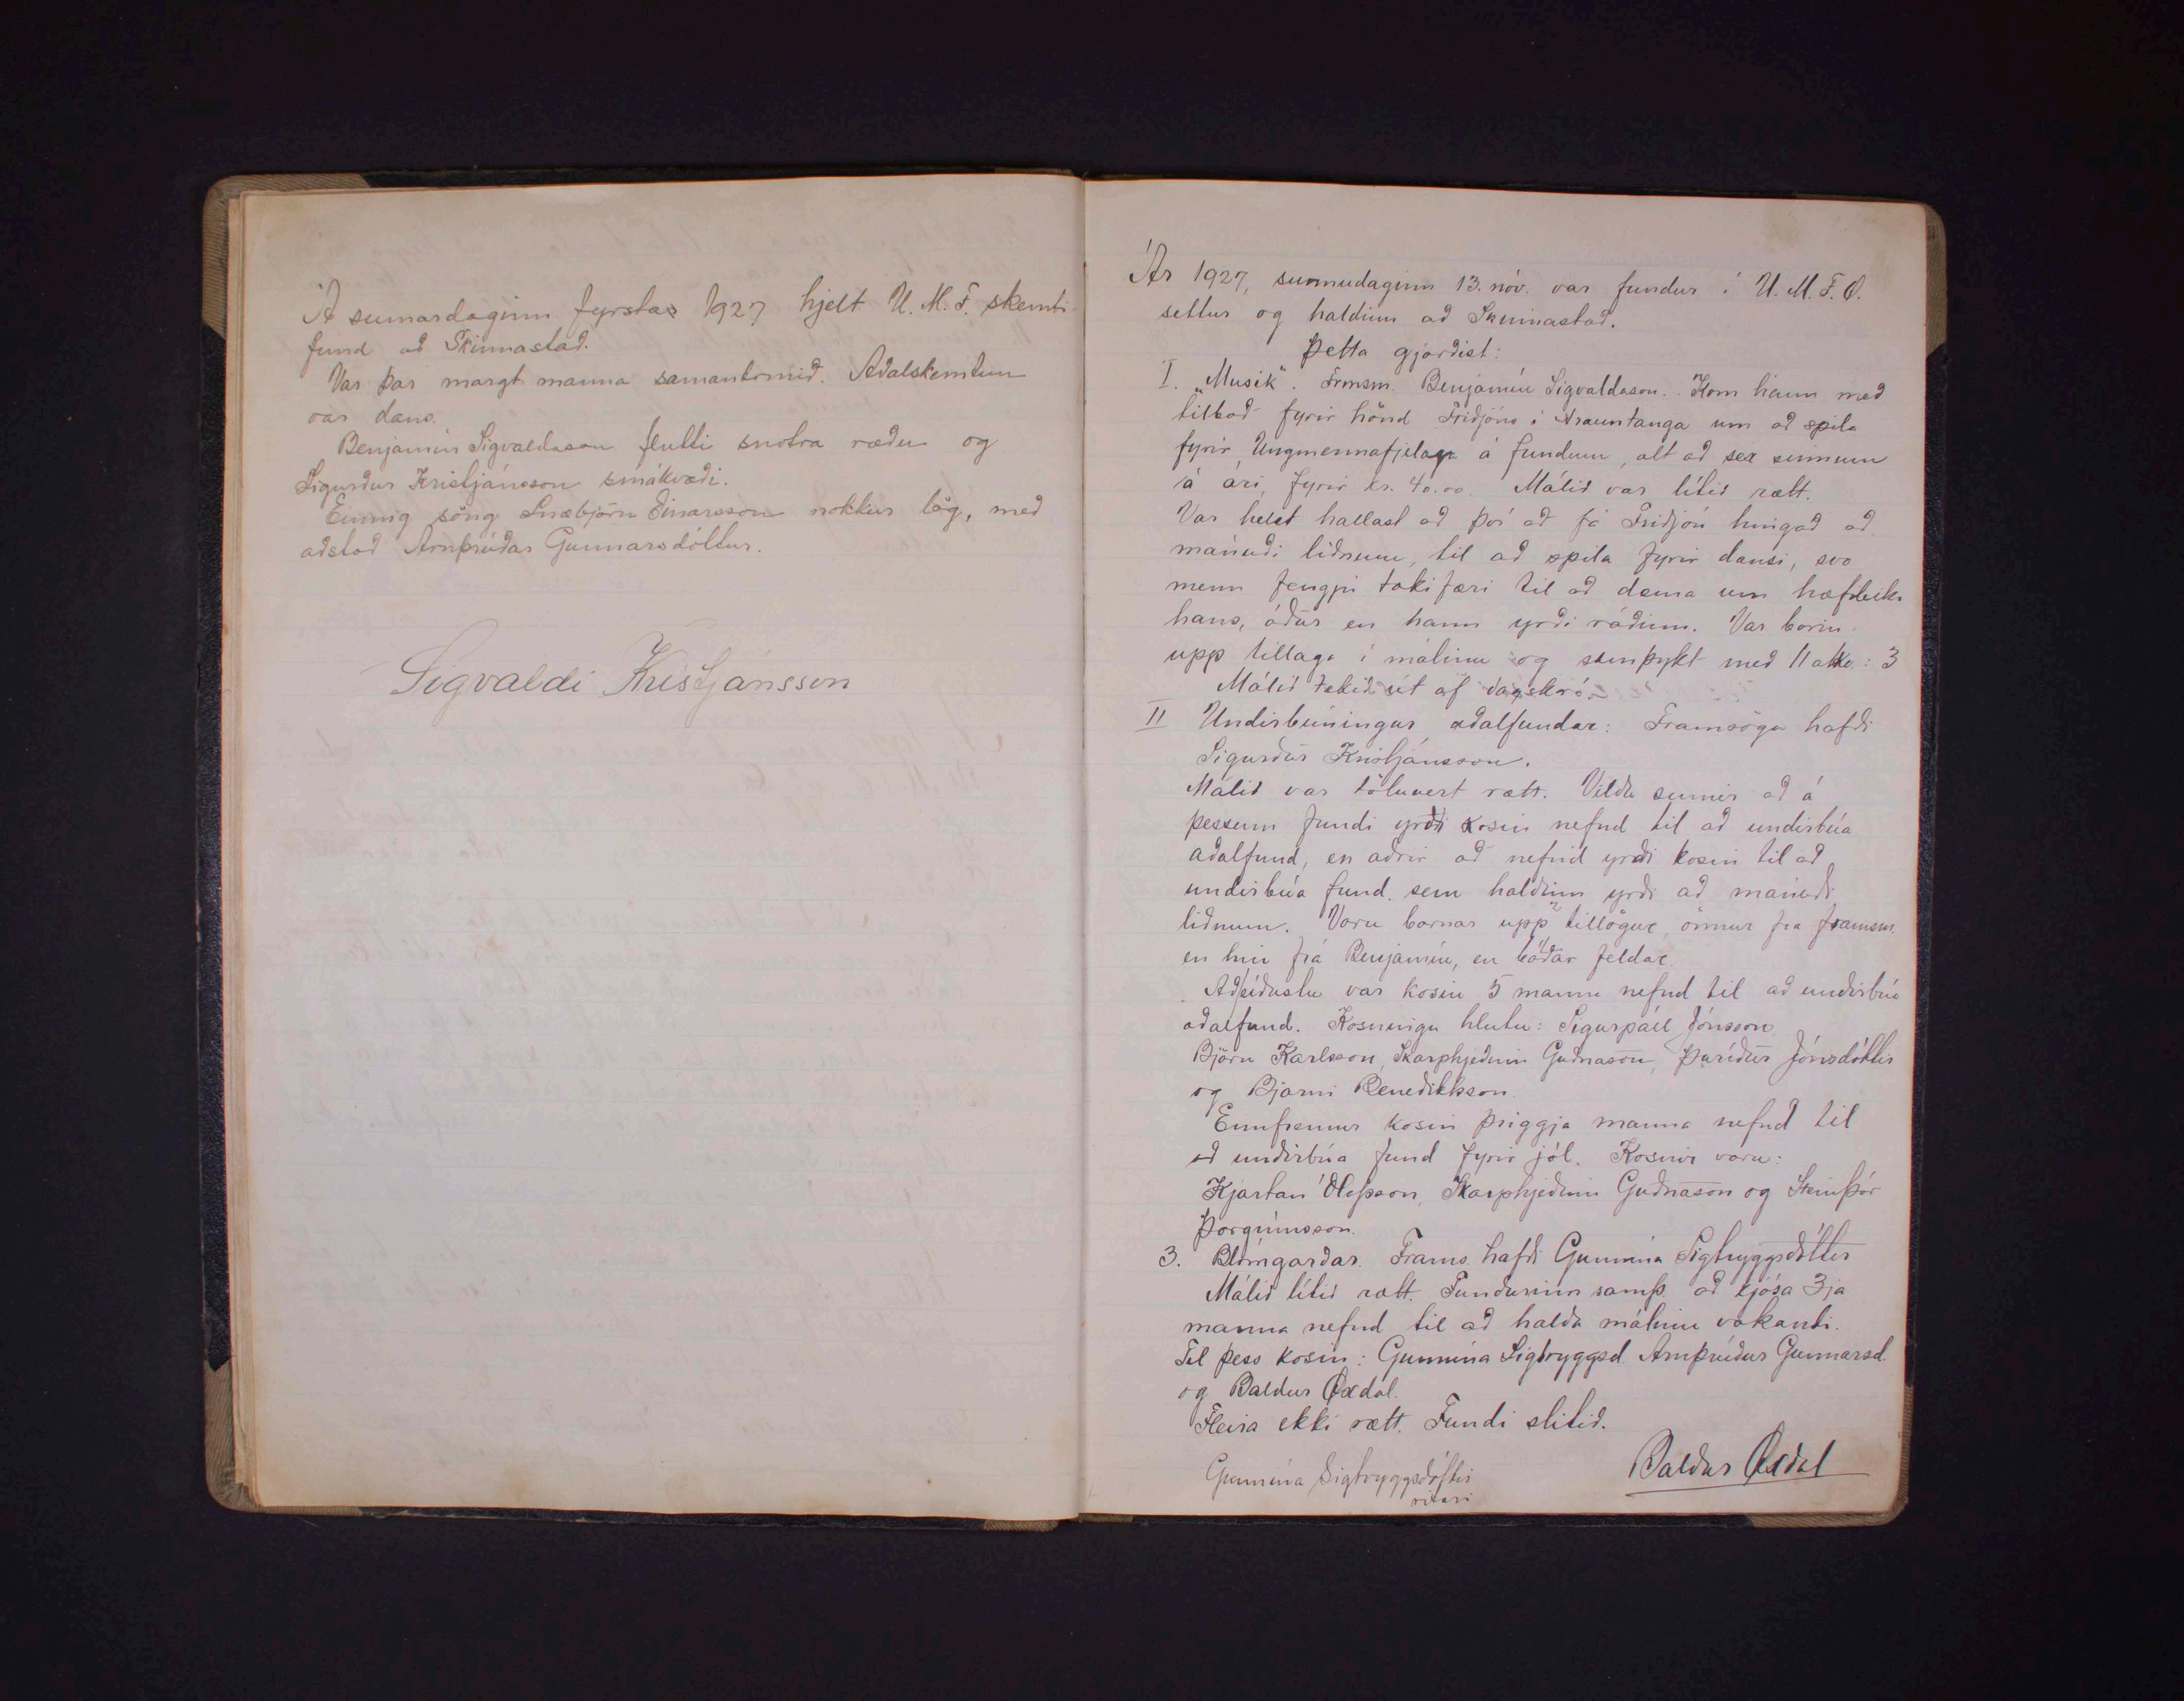 Á sumardaginn fyrstas 1927 hjelt U.M.F. skemti-
fund að Skinnastað.
Var þar margt manna samankomið. Aðalskemtun
var dans.
Benjamín Sigvaldason flutti snotra ræðu og
Sigurður Kristjánsson smákvæði.
Einnig söng Snæbjörn Einarsson nokkur lög, með
aðstoð Arnþrúðar Gunnarsdóttur.
Sigvaldi Kristjánsson
Ár 1927, sunnudaginn 13. nóv. var fundur í U.M.F.Ö.
settur og haldinn að Skinnastað.
Þetta gjörðist:
I. „Musik". Frmsm. Benjamín Sigvaldason. Kom hann með
tilboð fyrir hönd Friðjóns í um að spila
fyrir Ungmennafjelagi á fundum, alt að sex sinnum
á ári, fyrir kr. 40.00. Málið var lítið rætt.
Var helst hallast að því að fá Friðjón hingað að
mánuði liðnum, til að spila fyrir dansi, svo
menn fengju tækifæri til að dæma um hæfileika
hans, áður en hann yrði ráðinn. Var borin
upp tillaga í málinu og samþykt með 11 atkv.: 3
Málið tekið út af dagskrá.
II Undirbúningur aðalfundar: Framsögu hafði
Sigurður Kristjánsson.
Málið var töluvert rætt. Vildu sumir að á
þessum fundi yrði kosin nefnd til að undirbúa
aðalfund, en aðrir að nefnd yrði kosin til að
undirbúa fund sem haldinn yrði að mánuði
liðnum. Voru bornar upp 2 tillögur, önnur frá framsm.
en hin frá Benjamín, en báðar feldar.
Að síðustu var kosin 5 manna nefnd til að undirbúa
aðalfund. Kosningu hlutu: Sigurpáll Jónsson
Björn Karlsson, Skarphjeðinn Guðnason, Þuríður Jónsdóttir
og Bjarni Benediktsson.
Ennfremur kosin þriggja manna nefnd til
að undirbúa fund fyrir jól. Kosnir voru:
Kjartan Ólafsson, Skarphjeðinn Guðnason og Steinþór
Þorgrímsson.
3. Blómgarðar. Frams. hafði Gunnína Sigtryggsdóttir
Málið lítið rætt. Fundurinn samþ. að kjósa 3ja
manna nefnd til að halda málinu vakandi.
Til þess kosin: Gunnína Sigtryggsd. Arnþrúður Gunnarsd.
og Baldur Öxdal.
Fleira ekki rætt. Fundi slitið.
Baldur Öxdal
Gunnína Sigtryggsdóttir
ritari